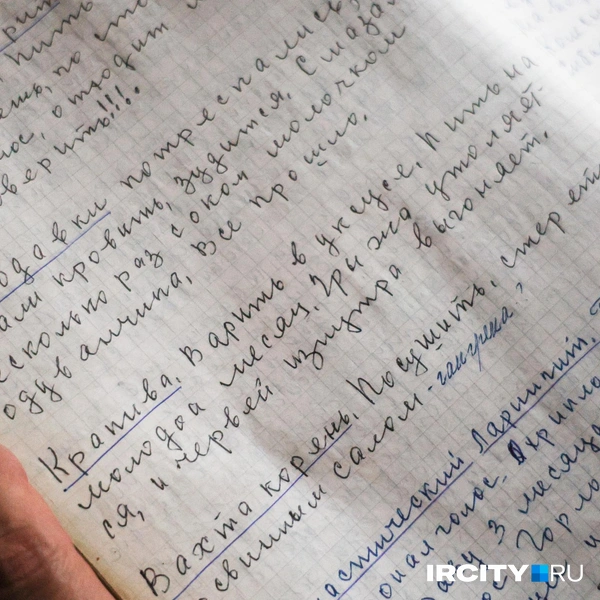 пить
по что
отходит
верить!!!.
одавки потрескались
али кровить, зудится. Смаза
есколько раз соком молочком
одуванчика. Все прошло.
Крапива. Варить в уксусе. Пить на
молодой месяц. Грыжа утоляет-
ся, и червей изнутра выгоняет.
Вахта корень. Посушить, стереть
свинным салом - гангрена?
астический Ларингит.
опал голос. Охрипло
3 месяца
Горло
IRCITY.RU